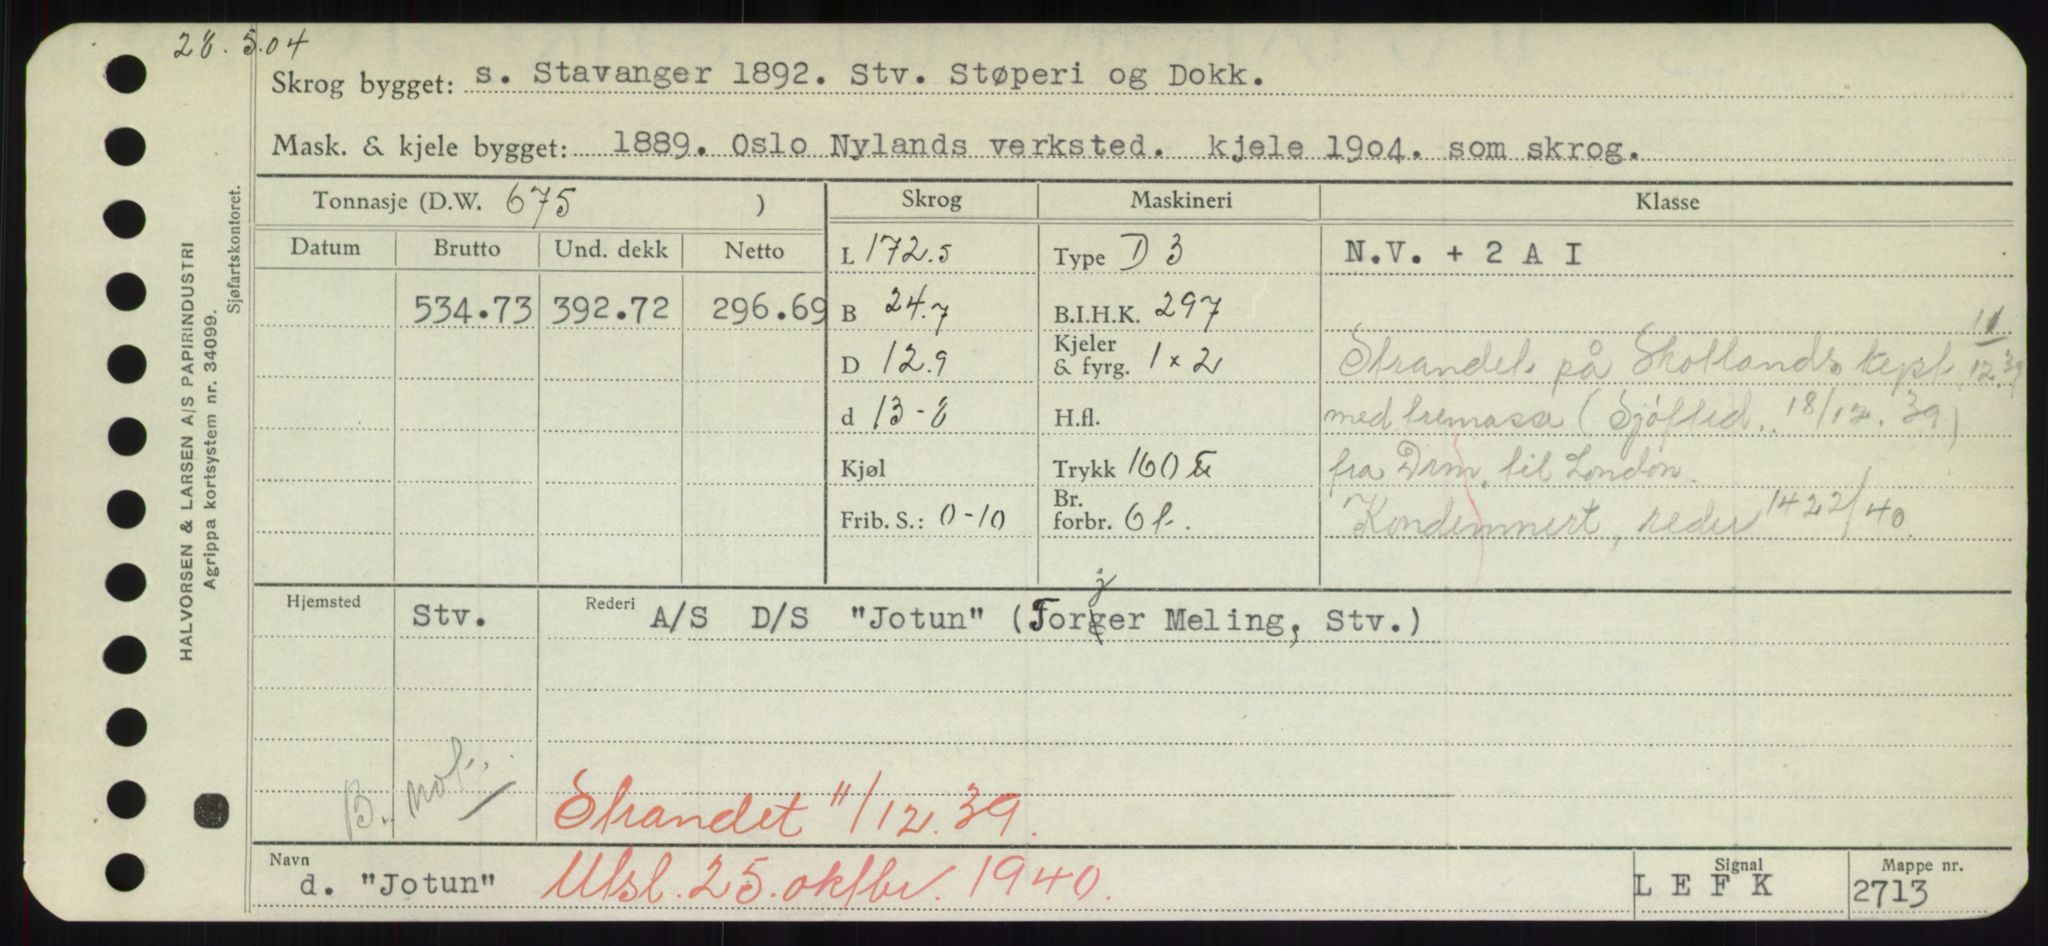 28.5.04
Skrog bygget: s. Stavanger 1892. Stv. Støperi og Dokk.
Mask. & kjele bygget: 1889. Oslo Nylands verksted. kjele 1904. som skrog.
Tonnasje (D.W. 675 ) Skrog Maskineri Klasse
Datum Brutto Und. dekk Netto L 172.5 Type D 3 N.V. + 2 A I
534.73 392.72 296.69 B 24.7 B.I.H.K. 297
D 12.9 Kjeler & fyrg. 1 x 2 Strandet på Skotlands kyst 11/12.39
d 13-8 H.fl. med (Sjøfted. 18/12.39)
Kjøl Trykk 160 fra Drm. til London.
Frib. S.: 0-10 Br. forbr. 6 t. Kondemnert, reder 22/40
Hjemsted Stv. Rederi A/S D/S "Jotun" (Torjer Meling, Stv.)
B. not.
Strandet 11/12.39.
Navn d. "Jotun" Utsl. 25. oktbr. 1940. Signal L E F K Mappe nr. 2713
HALVORSEN & LARSEN A/S PAPIRINDUSTRI
Agrippa kortsystem nr. 34099.
Sjøfartskontoret.